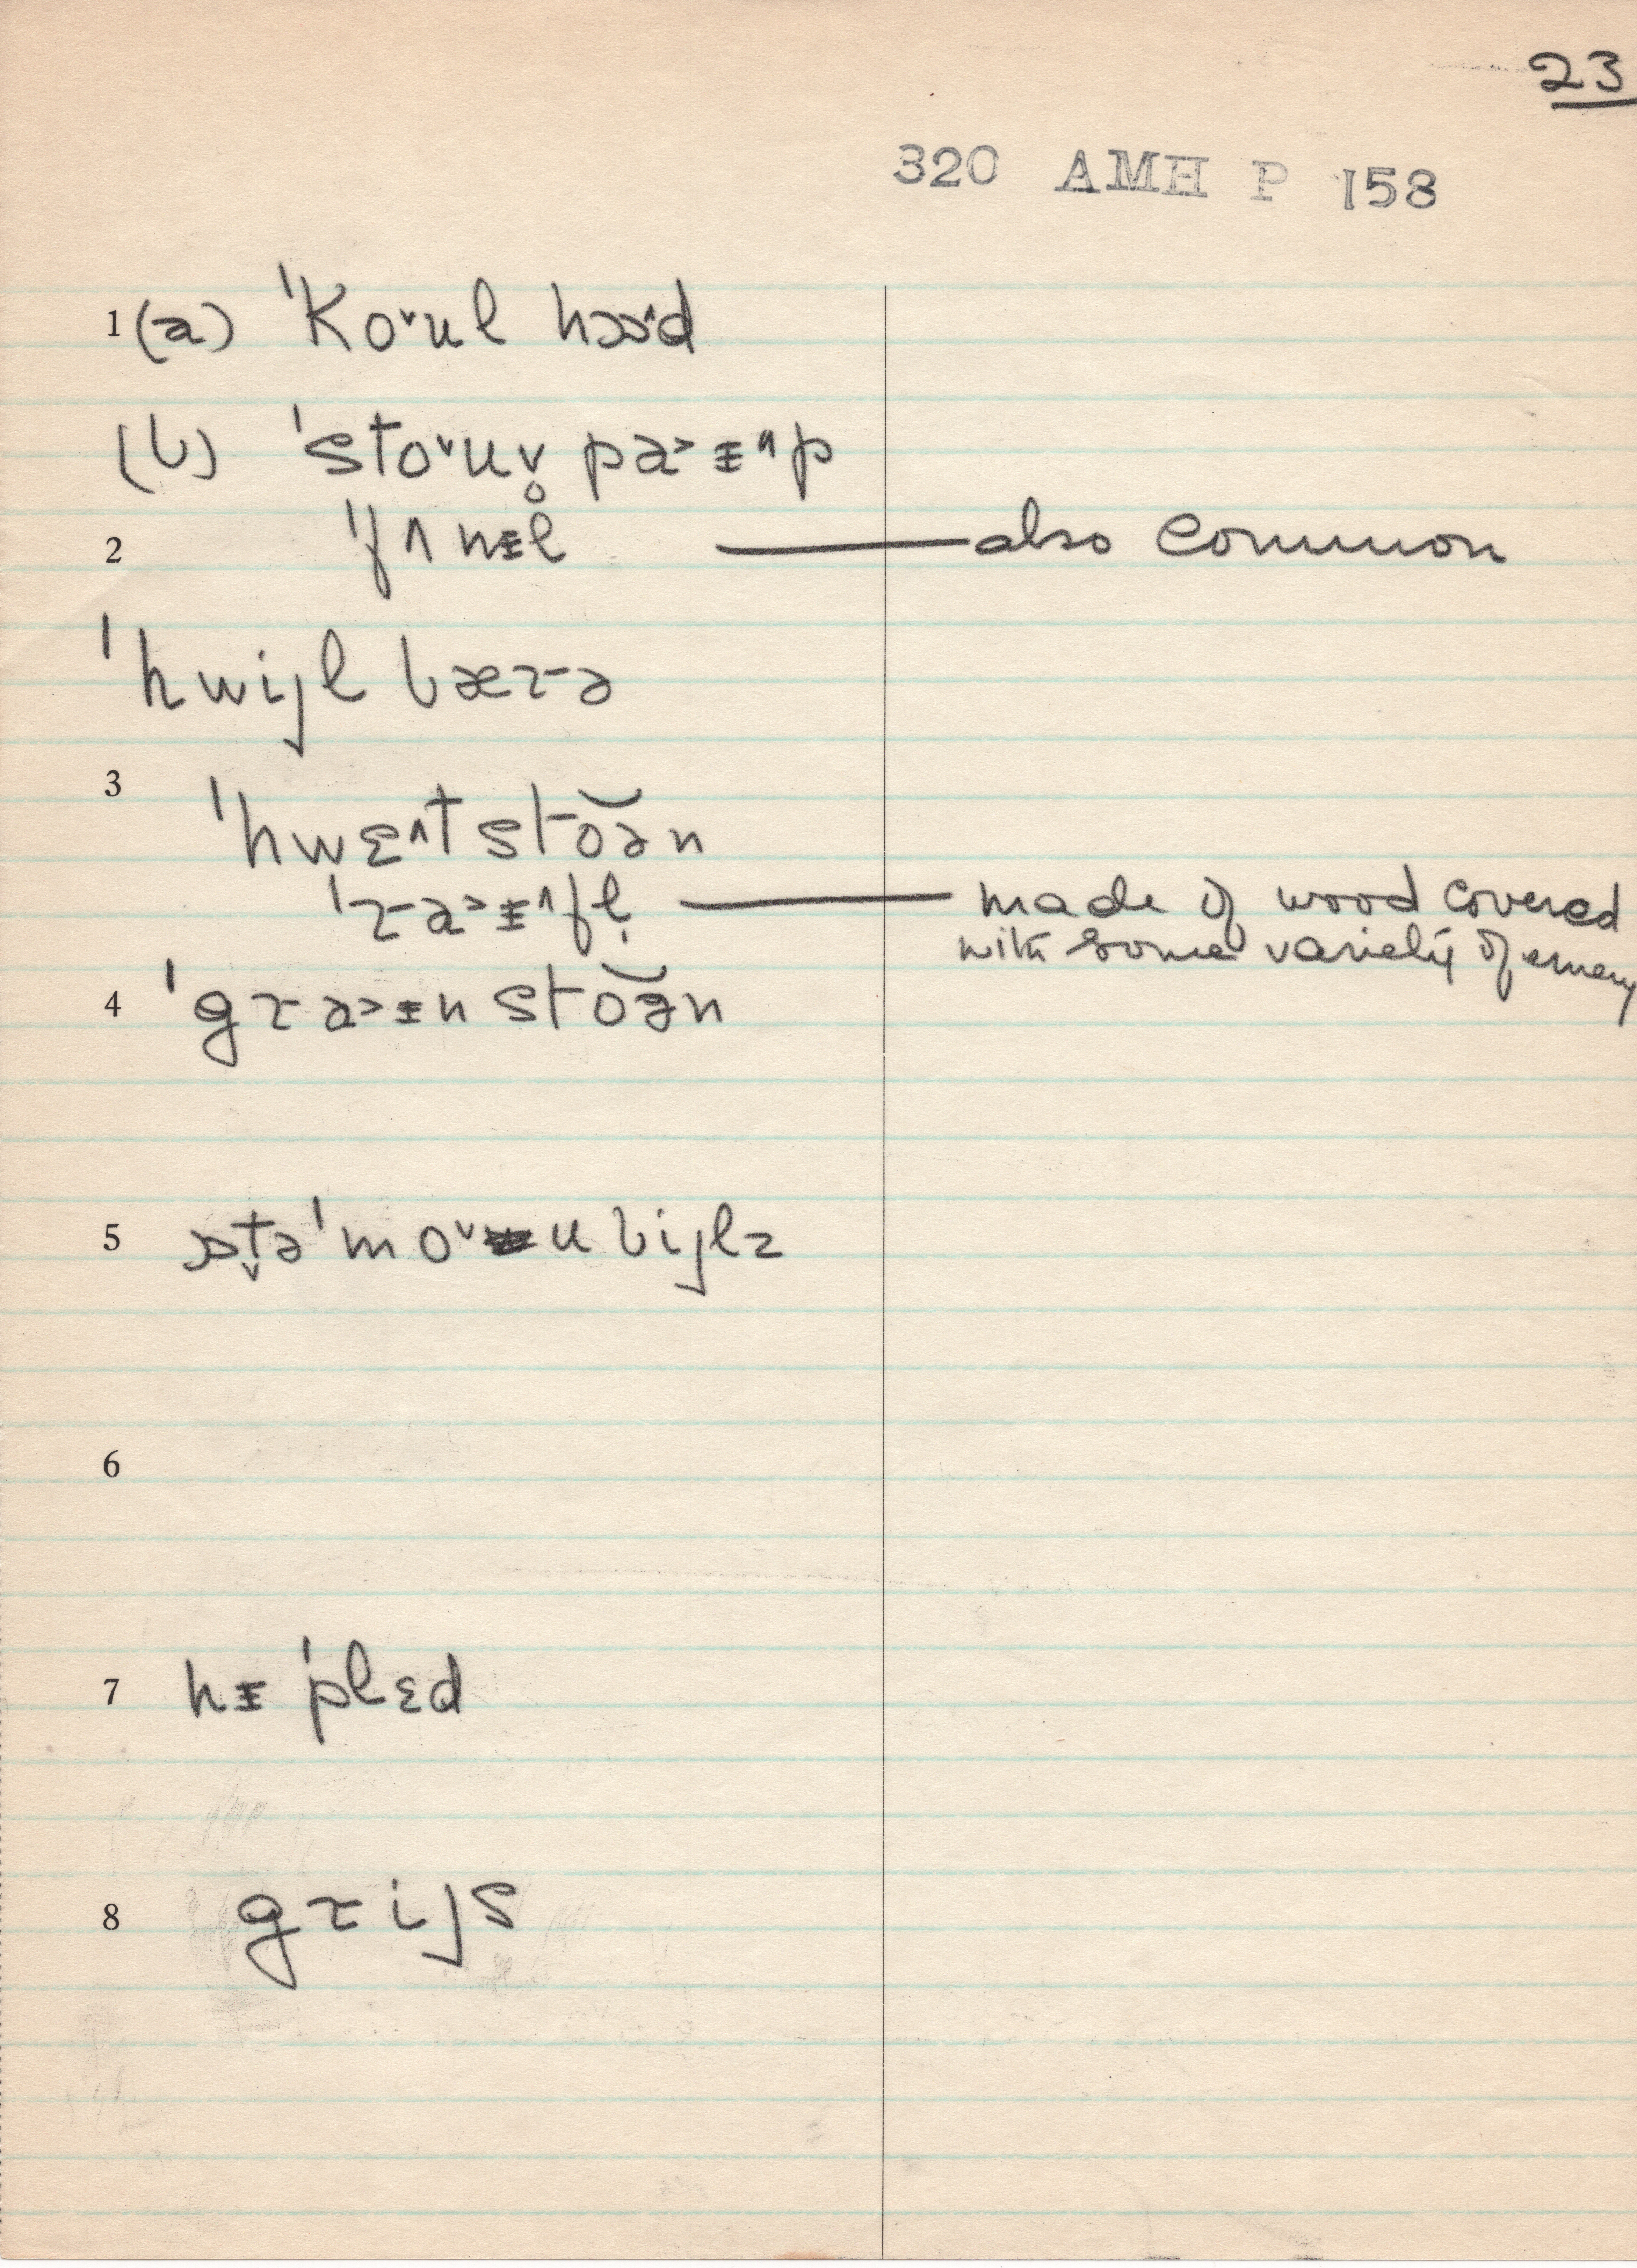 23
320 AMH P 158
1 (a) ˈKo˅ul hɔɔ^d
(b) ˈsto˅uv̥ pa>ɨ^p
2 ˈfʌnɨl — also common
ˈhwijl bærə
3 ˈhwɛ^tsto͝ən
ˈra>ɨ^fl̩ — made of wood covered
with some variety of emery
4 ˈgra>ɨnsto͝ən
5 ɔt̬əˈmo˅ubijlz
6
7 hɨ ˈplɛd
8 grijs